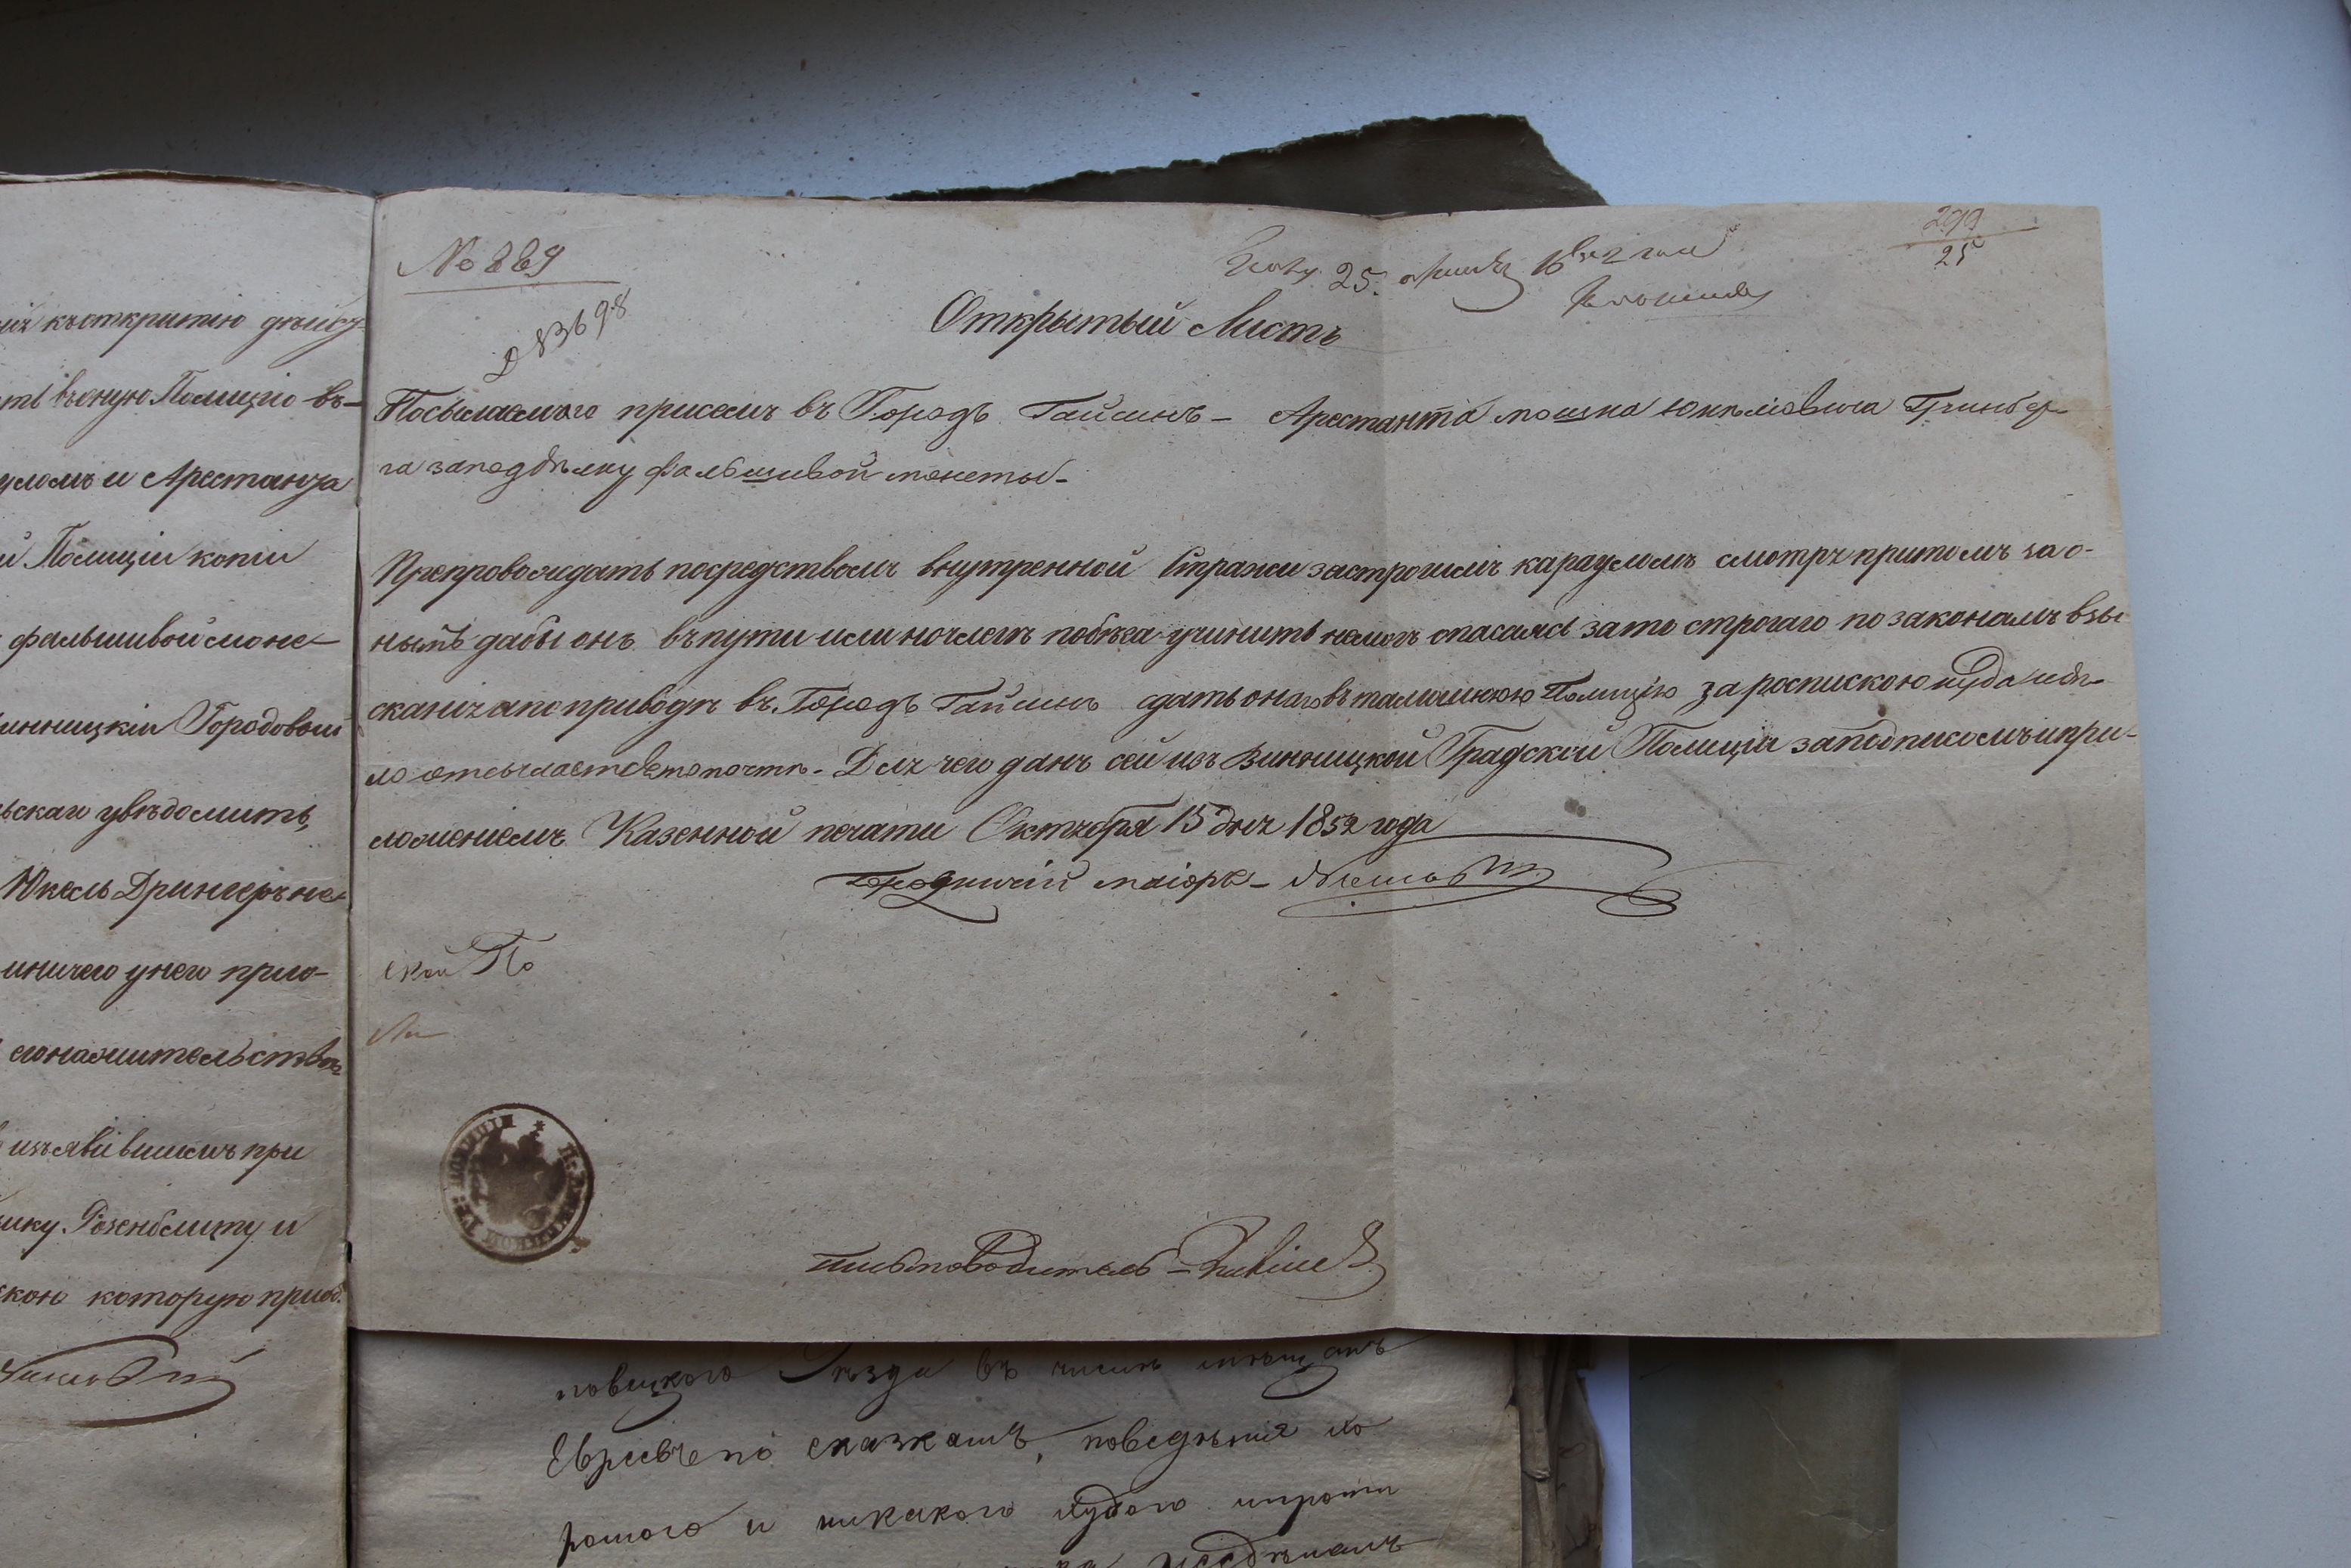 № 889
299
25
Открытый Листъ
Посылаемаго присемъ въ Городъ Гайсинъ - Арестанта мошка Юкелiовича Гринбер-
га заподѣлку фальшивой монеты -
Препровождать посредствомъ внутренной Стражи застрогимъ карауломъ смотря притомъ за о-
нымъ дабы онъ въпути или ночлегѣ побѣга учинить немогъ опасаясь зато строгаго по законамъ взы-
сканiя апо приводѣ въ Городъ Гайсинъ сдать онаго втамошнюю Полицiю за роспискою куда идѣ-
ло отсылается попочтѣ. Для чего данъ сей изъ Винницкой Градской Полицiи заподписомъ ипри-
ложенiемъ Казенной печати Октября 15 дня 1852 года
Городничiй маiоръ -
ской По
Ли
письмоводитель -
къоткрытiю дѣйст-
въоную Полицiю въ-
и Арестанта
Полицiи копiи
фальшивой моне-
инницкiй Городовой
увѣдомить,
Юкель Дрингеръ не-
иничего унего прио-
егонажительства
изъявившимъ при
Розенблиту и
которую приоб.
повицкого Уѣзда въ числѣ мѣщанъ
Евреевъ по сказкамъ, поведѣнiя хо
рошого и никакого худого